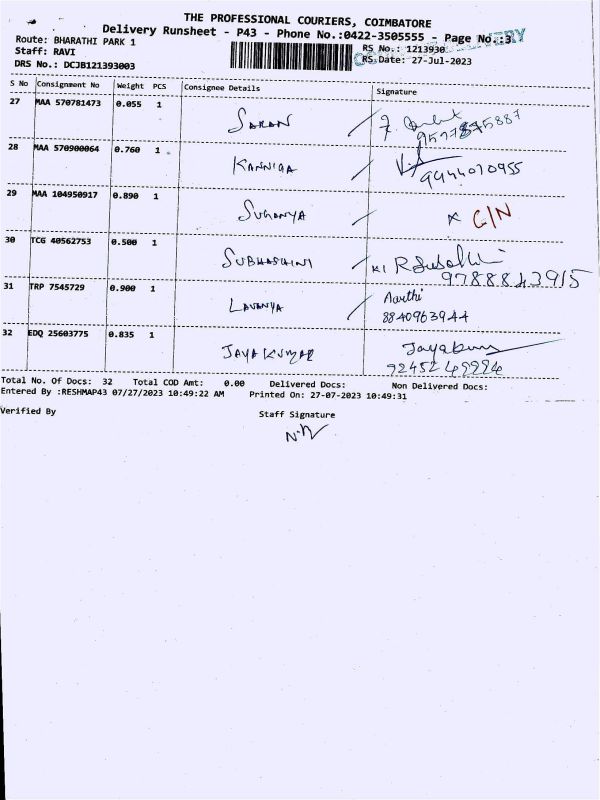 THE PROFESSIONAL COURIERS, COIMBATORE
Delivery Runsheet - P43 - Phone No.:0422-3505555 - Page No.:3
Route: BHARATHI PARK 1
RS No.: 1213930
Staff: RAVI
RS Date: 27-Jul-2023
DRS No.: DCJB121393003
S No Consignment No Weight PCS Consignee Details Signature
27 MAA 570781473 0.055 1 SARAN
28 MAA 570900064 0.760 1 KANNIGA 9944010955
29 MAA 104950917 0.890 1 SUGANYA X C/N
30 TCG 40562753 0.500 1 SUBHASHINI
31 TRP 7545729 0.900 1 LAVANYA Aarthi
8840963944
32 EDQ 25603775 0.835 1 JAYAKUMAR
Total No. Of Docs: 32 Total COD Amt: 0.00 Delivered Docs: Non Delivered Docs:
Entered By :RESHMAP43 07/27/2023 10:49:22 AM Printed On: 27-07-2023 10:49:31
Verified By Staff Signature